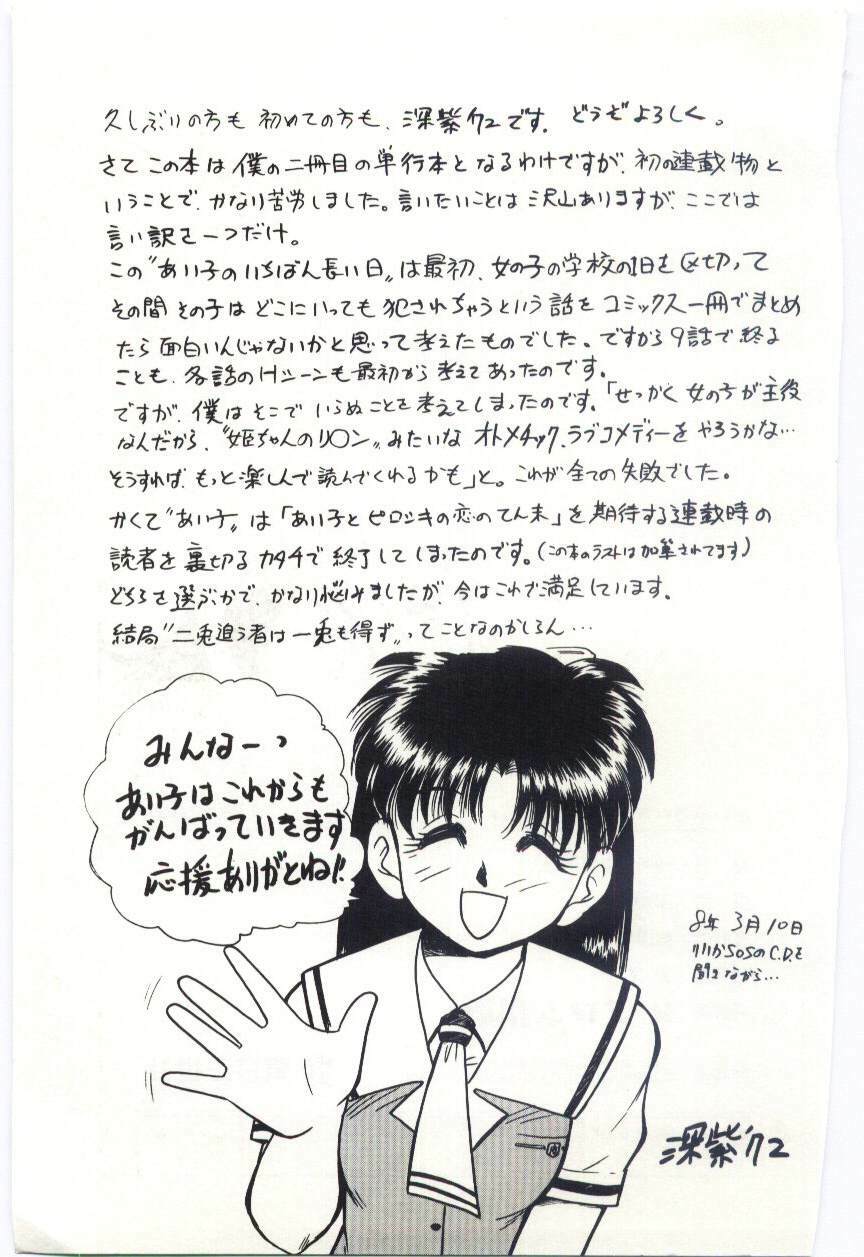 久しぶりの方も 初めての方も、深紫'72です。どうぞよろしく。
さて この本は 僕の二冊目の単行本となるわけですが、初の連載物と
いうことで、かなり苦労しました。言いたいことは 沢山ありますが、ここでは
言い訳を一つだけ。
この〝あい子のいちばん長い日〟は最初、女の子の学校の1日を区切って
その間 その子は どこにいっても 犯されちゃうという話を コミックス一冊でまとめ
たら 面白いんじゃないかと思って考えたものでした。ですから9話で終る
ことも、各話のHシーンも最初から考えてあったのです。
ですが、僕はそこで いらぬことを考えてしまったのです。「せっかく女の子が主役
なんだから、〝姫ちゃんのリ○ン〟みたいな オトメチック、ラブコメディーをやろうかな…
そうすれば、もっと楽しんで読んでくれるかも」と。これが全ての失敗でした。
かくて〝あい子〟は「あい子とピロシキの恋のてん末」を期待する連載時の
読者を裏切るカタチで終了してしまったのです。(この本のラストは加筆されてます)
どちらを選ぶかで、かなり悩みましたが、今はこれで満足しています。
結局〝二兎追う者は一兎も得ず〟ってことなのかしらん…
みんなーっ
あい子はこれからも
がんばっていきます
応援ありがとね!!
8年 3月10日
リリカSOSのC.D.を
聞きながら…
深紫'72